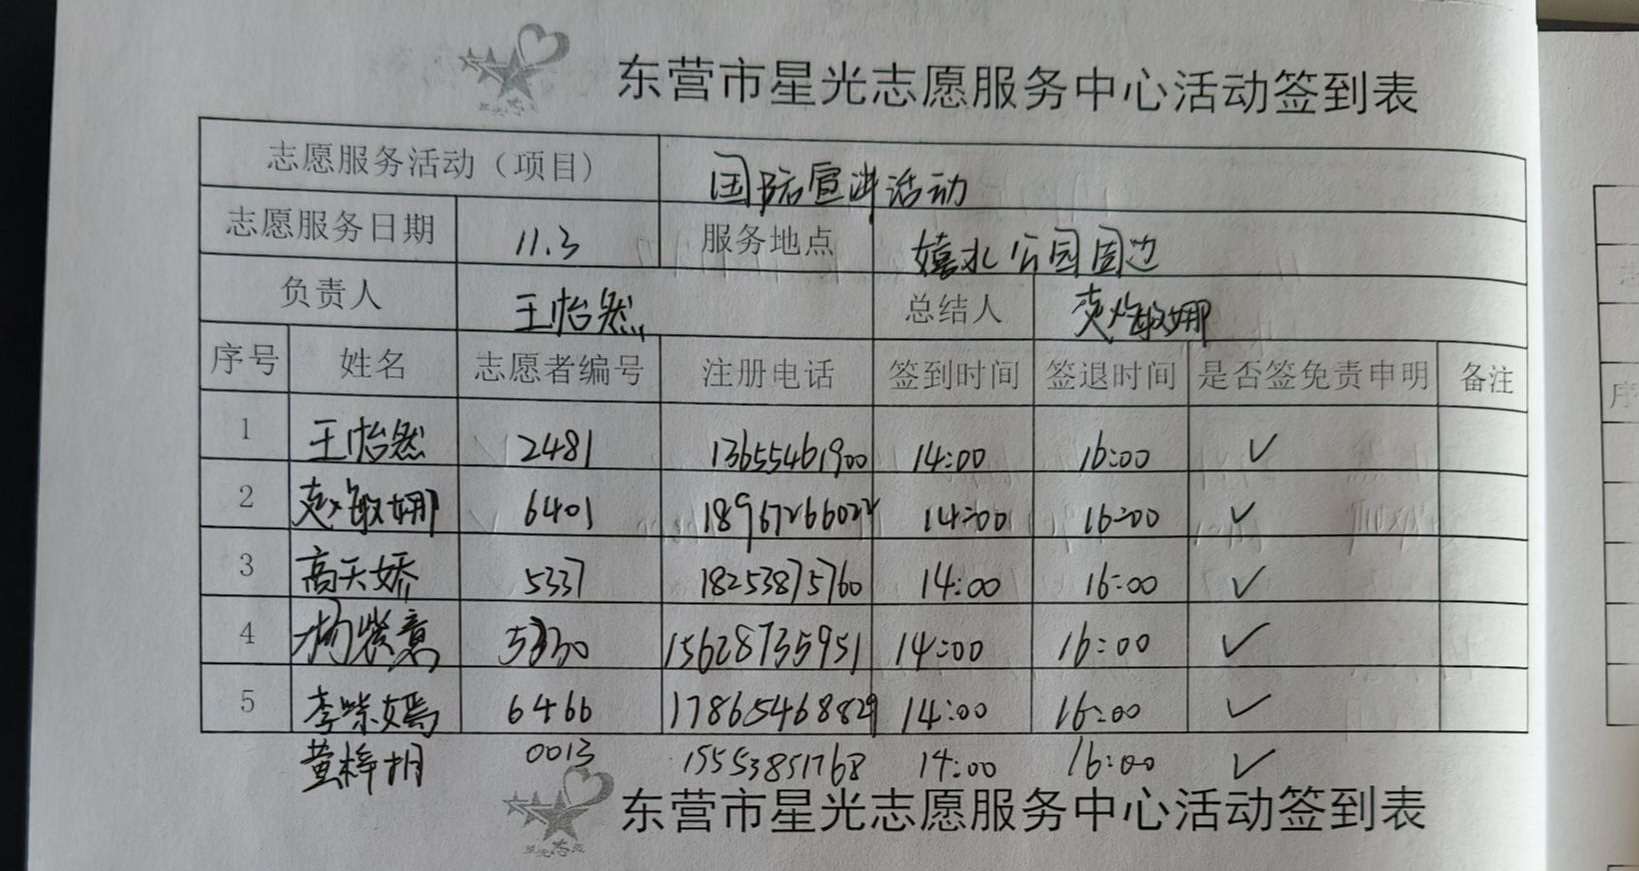 东营市星光志愿服务中心活动签到表
志愿服务活动（项目） 国防宣讲活动
志愿服务日期 11.3 服务地点 嬉水公园周边
负责人 王怡然 总结人 赵敏娜
序号 姓名 志愿者编号 注册电话 签到时间 签退时间 是否签免责申明 备注
1 王怡然 2481 13655461900 14:00 16:00 ✓
2 赵敏娜 6401 18967266022 14:00 16:00 ✓
3 高天娇 5337 18253875760 14:00 16:00 ✓
4 杨紫意 5330 15628735951 14:00 16:00 ✓
5 李紫嫣 6466 17865468829 14:00 16:00 ✓
黄梓玥 0013 15553851768 14:00 16:00 ✓
东营市星光志愿服务中心活动签到表